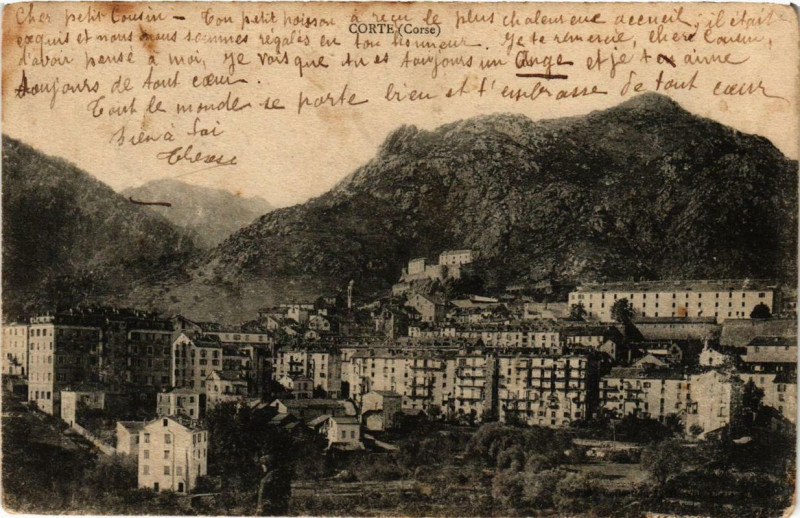 Cher petit Cousin - Ton petit poisson a reçu le plus chaleureux accueil, il était
exquis et nous nous sommes régalés en ton honneur. Je te remercie, cher Cousin,
CORTE (Corse)
d'avoir pensé à moi, Je vois que tu es toujours un Ange et je t'aime
toujours de tout cœur.
Tout le monde se porte bien et t'embrasse de tout cœur
bien à toi
Therese